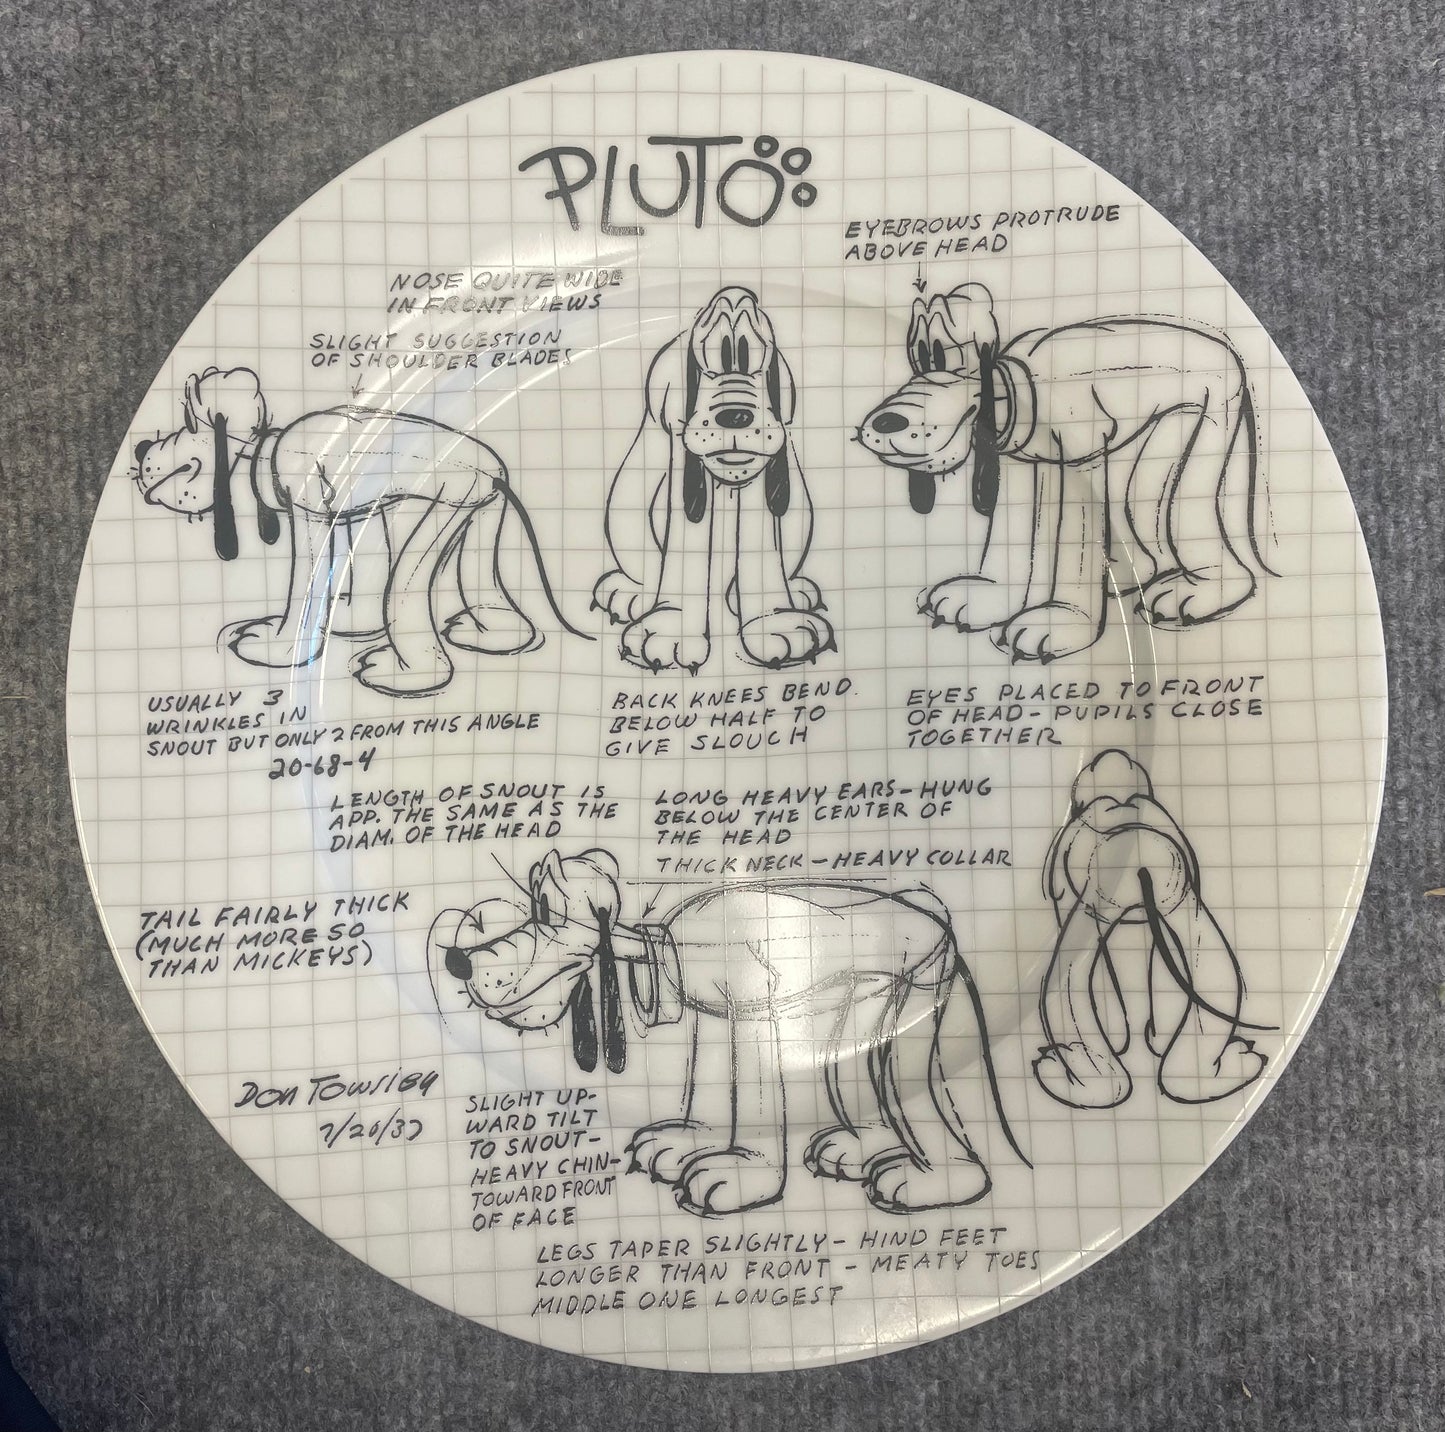 PLUTO
EYEBROWS PROTRUDE
ABOVE HEAD
NOSE QUITE WIDE
IN FRONT VIEWS
SLIGHT SUGGESTION
OF SHOULDER BLADES
USUALLY 3
WRINKLES IN
SNOUT BUT ONLY 2 FROM THIS ANGLE
20-68-4
BACK KNEES BEND
BELOW HALF TO
GIVE SLOUCH
EYES PLACED TO FRONT
OF HEAD - PUPILS CLOSE
TOGETHER
LENGTH OF SNOUT IS
APP. THE SAME AS THE
DIAM. OF THE HEAD
LONG HEAVY EARS - HUNG
BELOW THE CENTER OF
THE HEAD
THICK NECK - HEAVY COLLAR
TAIL FAIRLY THICK
(MUCH MORE SO
THAN MICKEYS)
Don Towsley
7/20/37
SLIGHT UP-
WARD TILT
TO SNOUT -
HEAVY CHIN -
TOWARD FRONT
OF FACE
LEGS TAPER SLIGHTLY - HIND FEET
LONGER THAN FRONT - MEATY TOES
MIDDLE ONE LONGEST